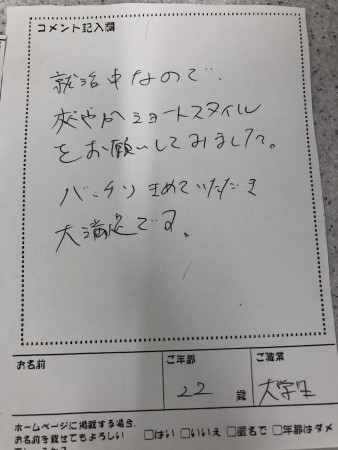 コメント記入欄
就活中なので、
爽やかショートスタイル
をお願いしてみました。
バッチリきめていただき
大満足です。
お名前
ご年齢
ご職業
22歳
大学生
ホームページに掲載する場合、
お名前を載せてもよろしい
□はい □いいえ □匿名で □年齢はダメ